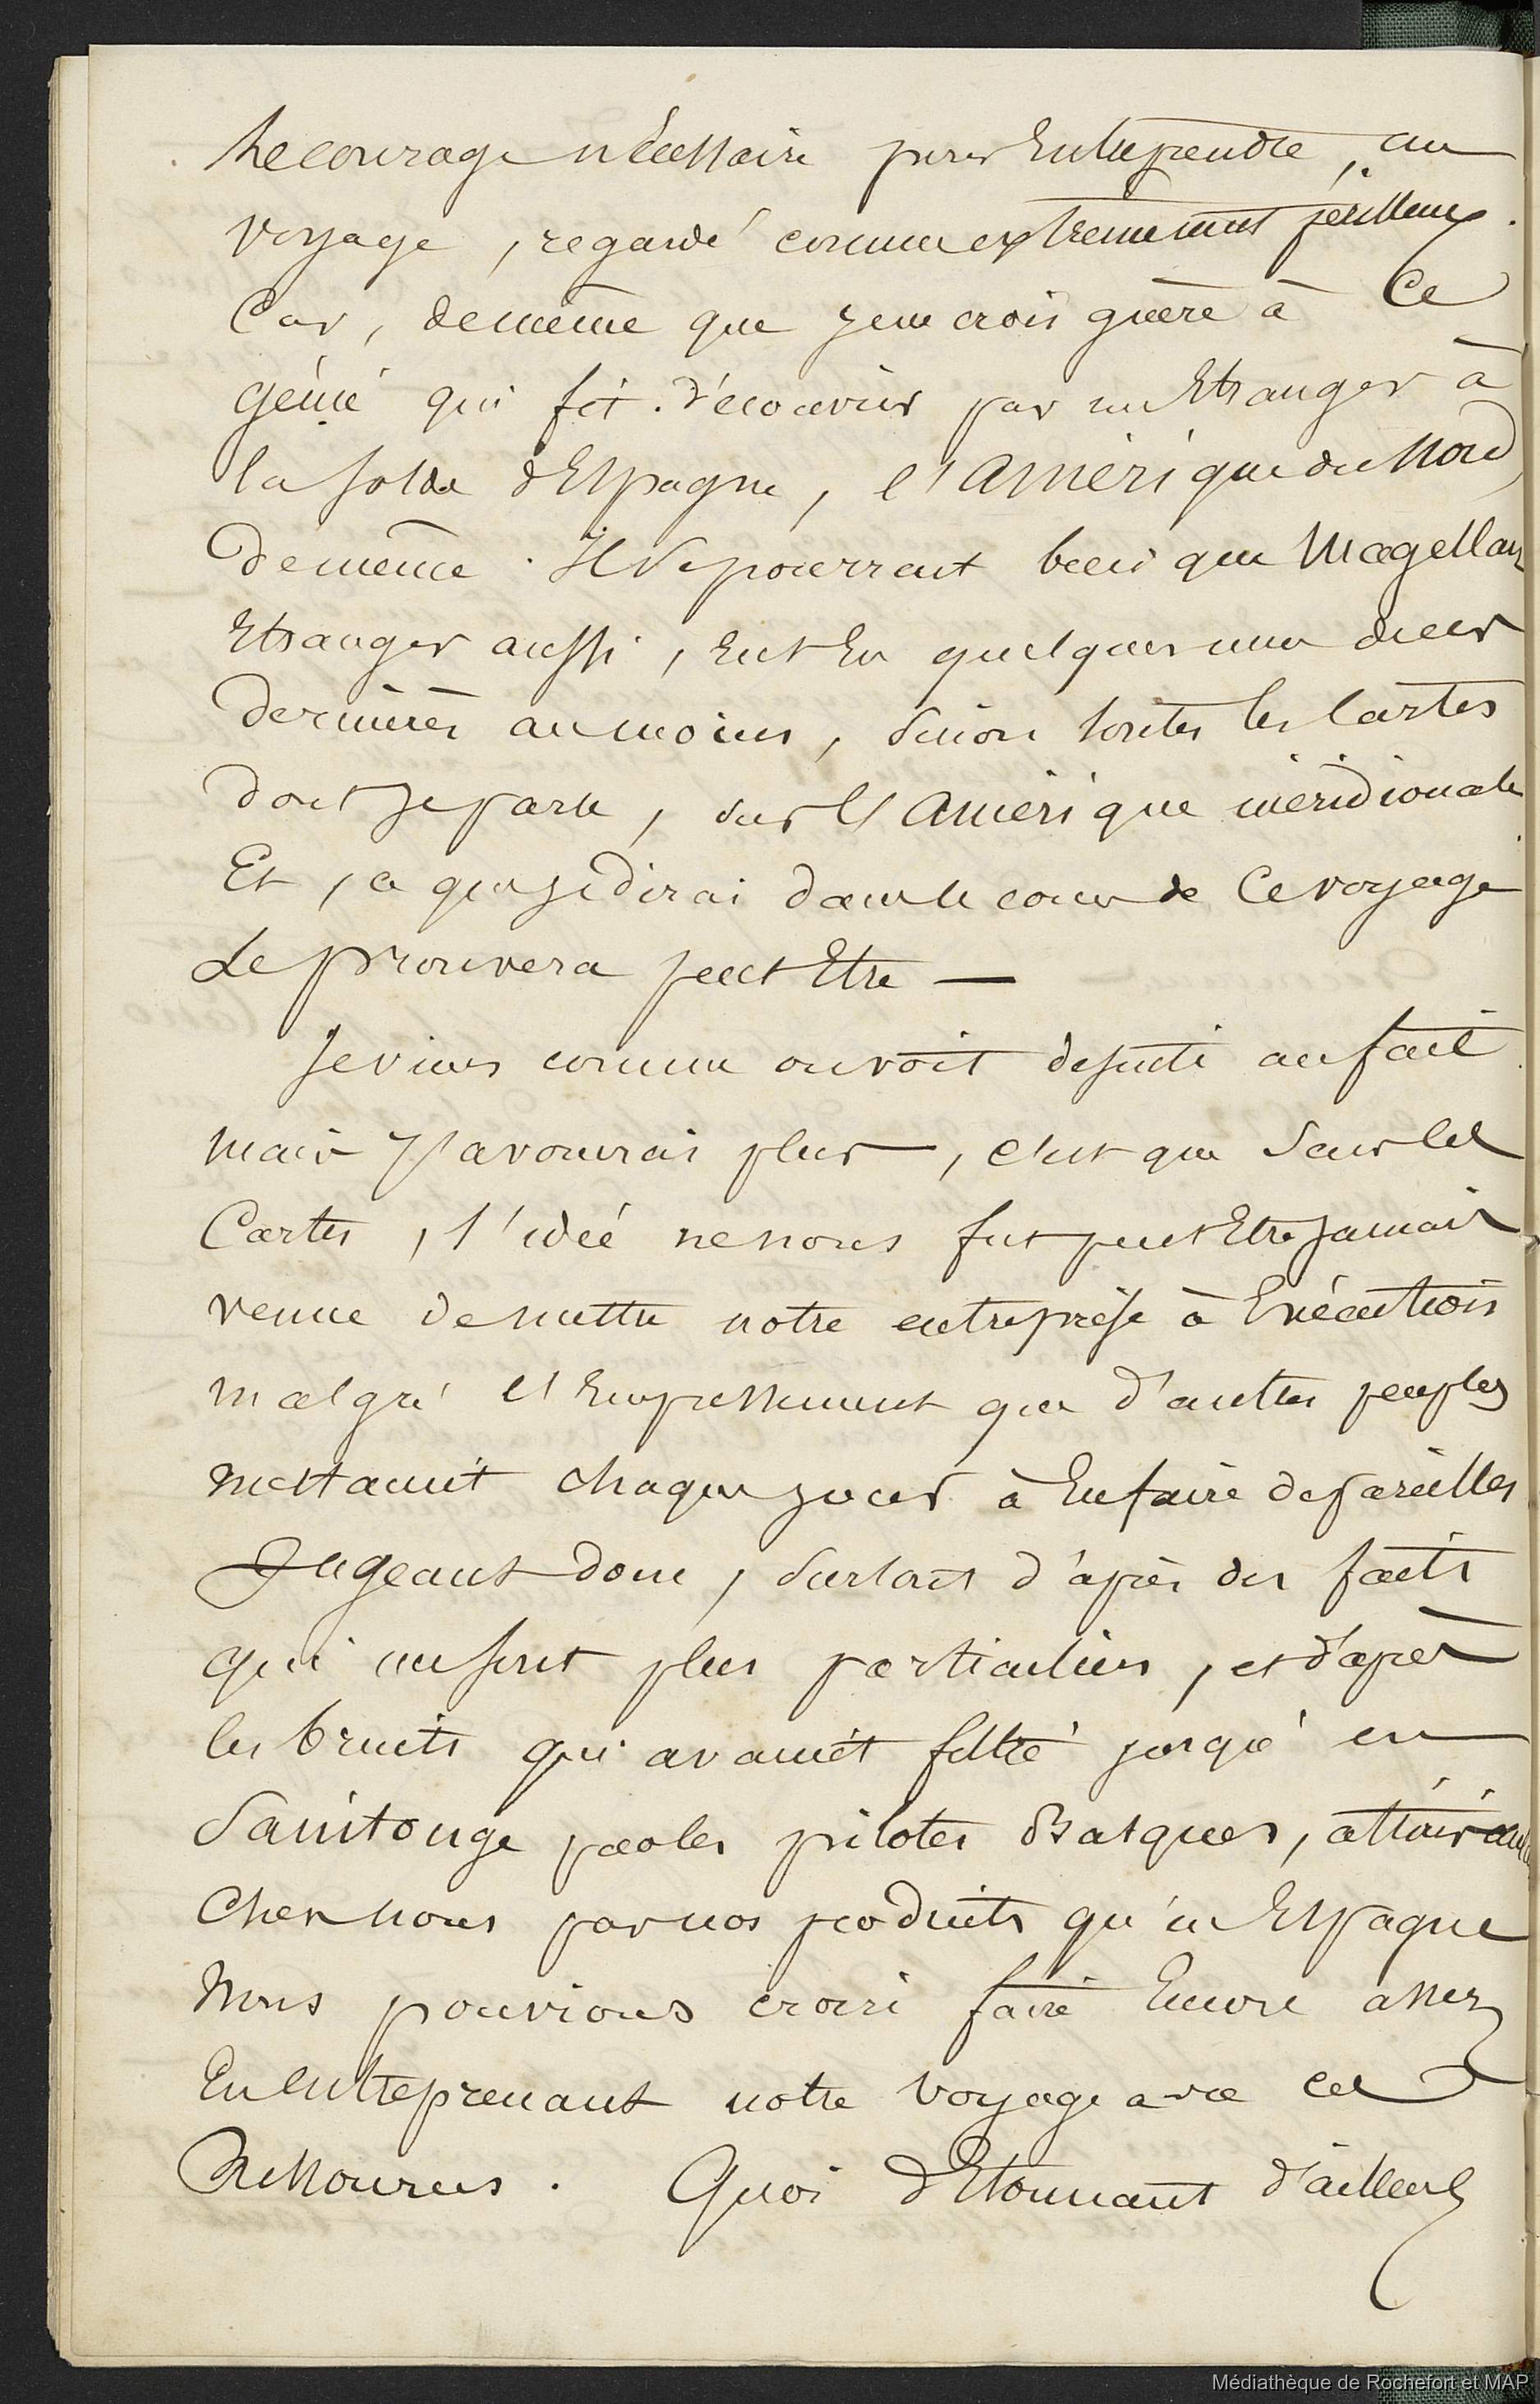 le courage nécessaire pour Entreprendre, un
voyage, regardé comme extremement périlleux.
Car, de même que je ne crois guère à Ce
génie qui fit découvrir par un Etranger à
la solde d'Espagne, l'Amérique du Nord,
de même. Il se pourrait bien que Magellan
Etranger aussi, eut Eu quelques unes des
dernières au moins, sinon toutes les Cartes
dont je parle, sur l'Amérique méridionale
Et, ce que je dirai dans le cours de Ce voyage
Le prouvera peut Etre —
Je viens comme on voit de suite au fait
mais j'avouerai plus, c'est que sans les
Cartes, l'idée ne nous fut peut Etre jamais
venue de mettre notre entreprise à Exécution
malgré l'Empressement que d'autres peuples
mettaient chaque jour à En faire de pareilles
Jugeant donc, surtout d'après des faits
qui me sont plus particuliers, et d'après
les bruits qui avaient filtré jusqu'en
Saintonge par les pilotes Basques, attirés
Chez nous par nos produits qu'en Espagne
Nous pouvions croire faire Encore assez
En Entreprenant notre voyage avec ces
Ressources. Quoi d'Etonnant d'ailleurs
Médiathèque de Rochefort et MAP